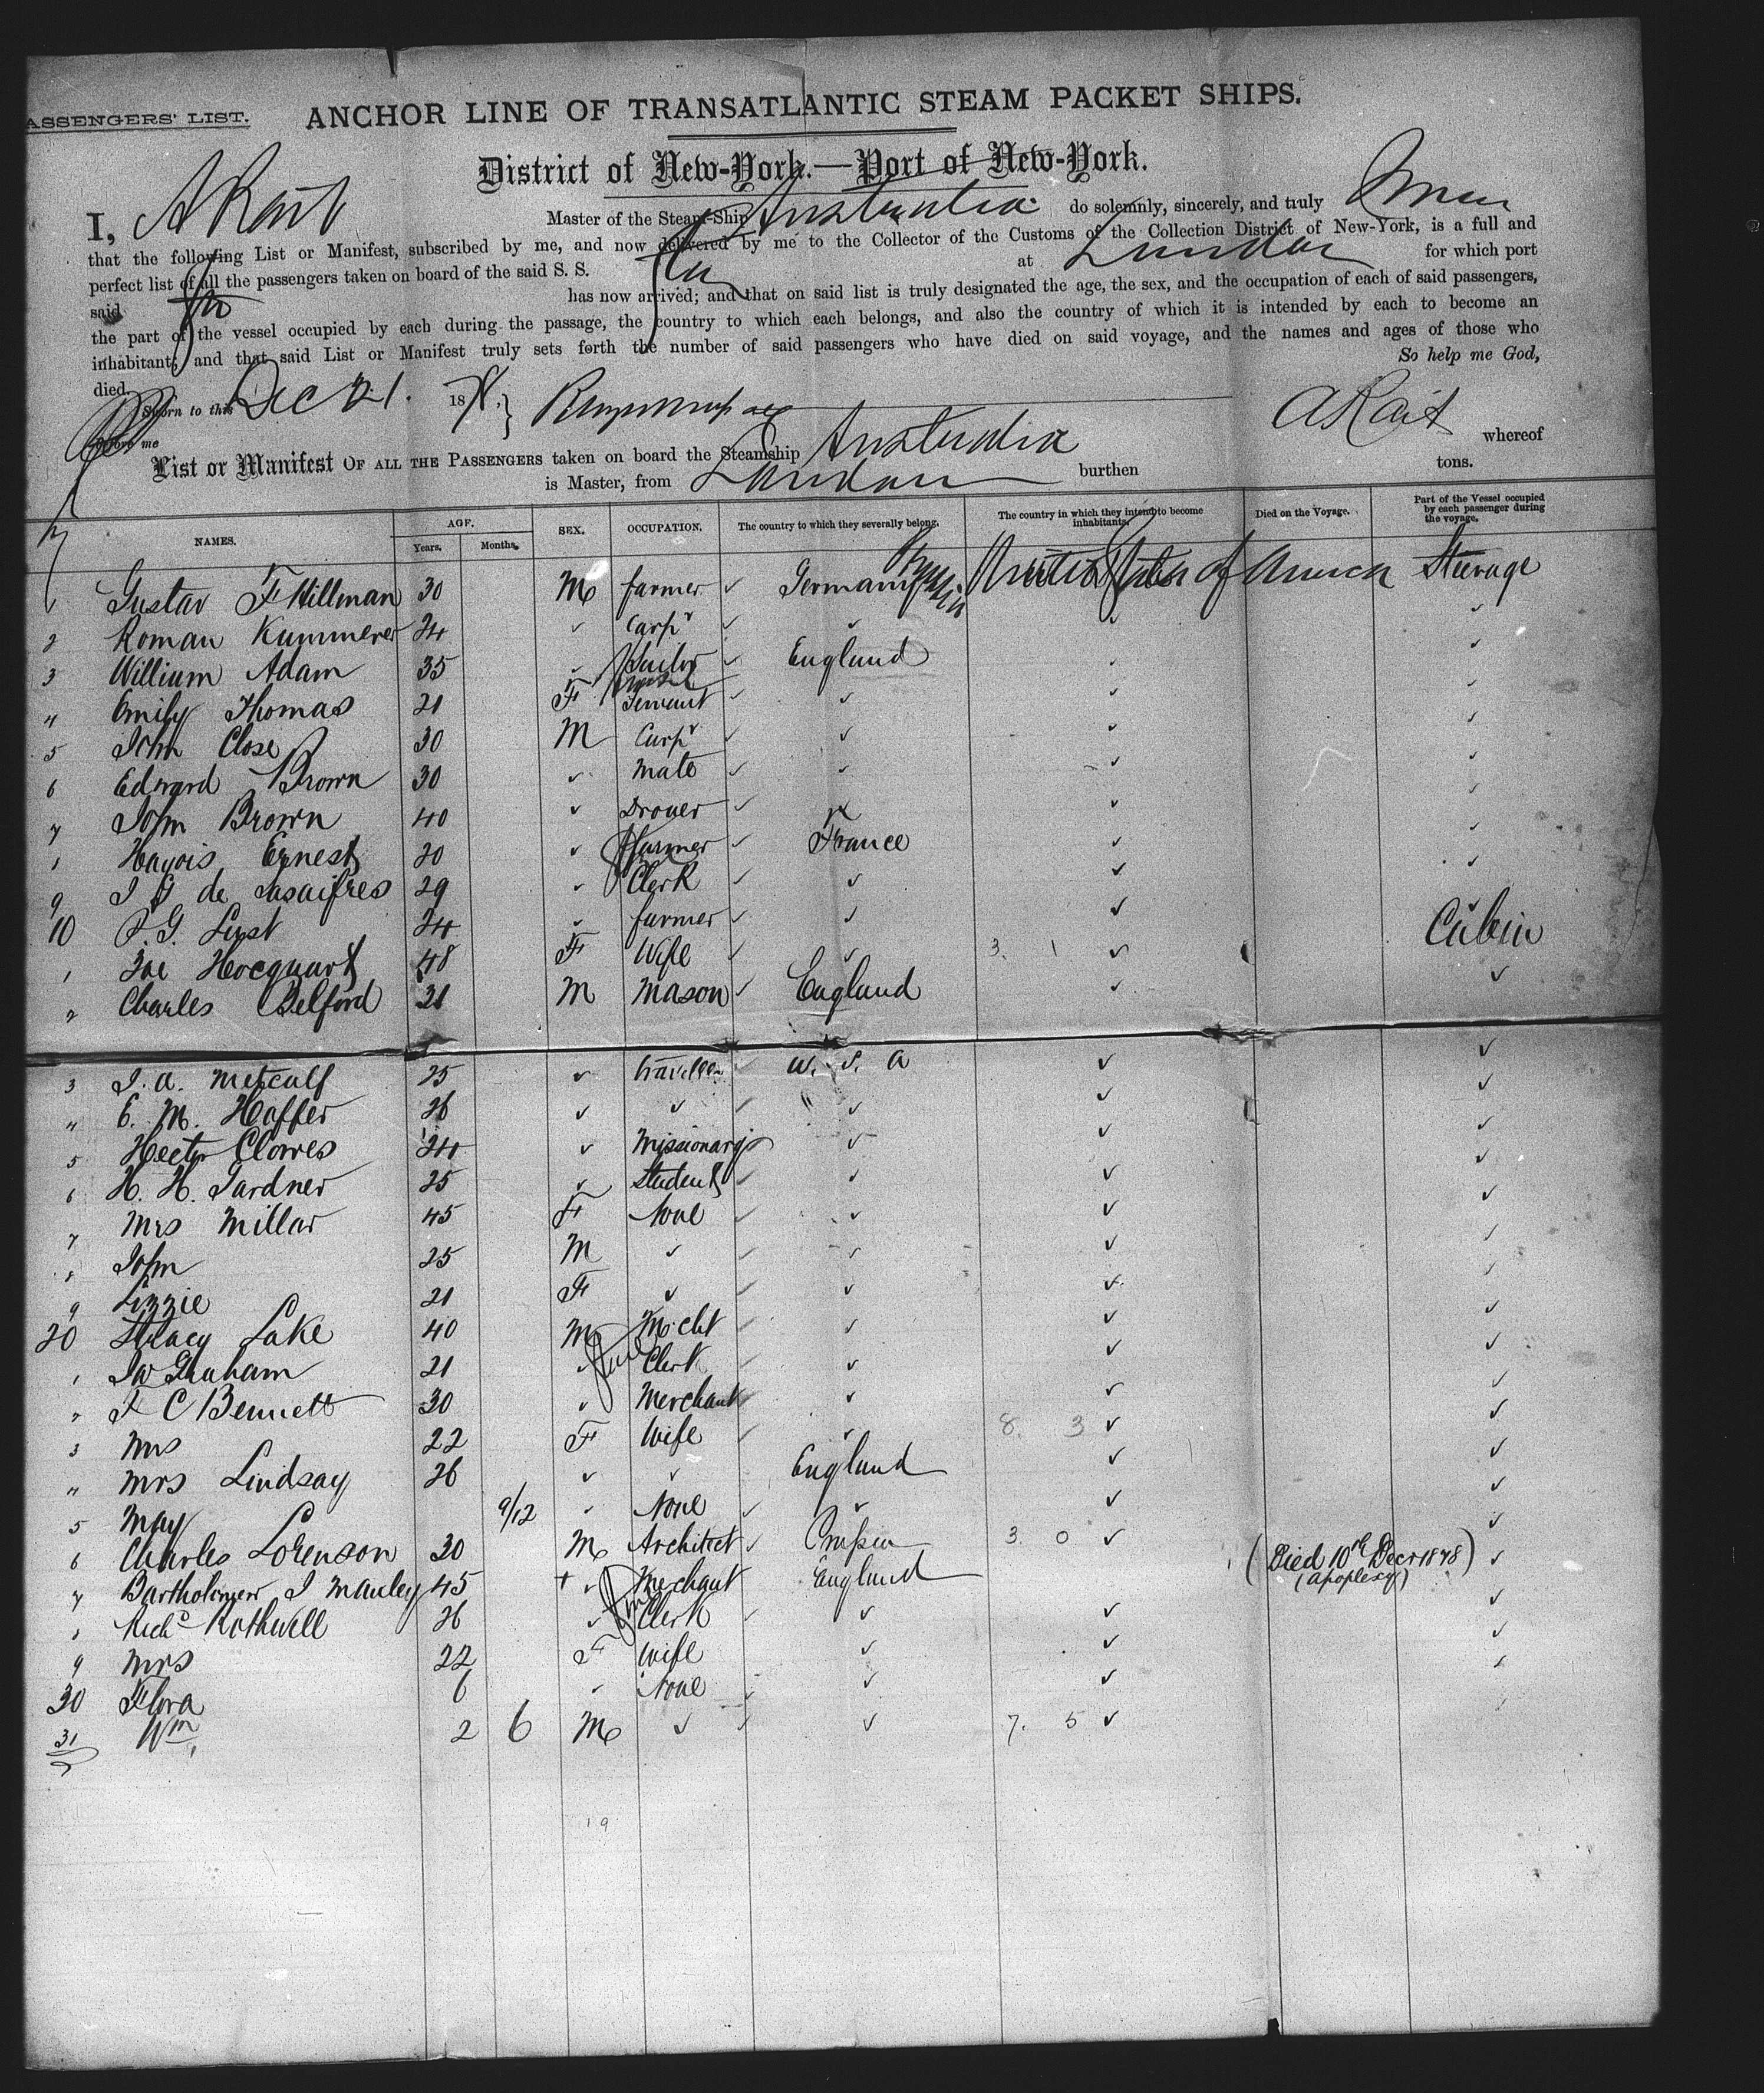 PASSENGERS' LIST. ANCHOR LINE OF TRANSATLANTIC STEAM PACKET SHIPS.
District of New-York.—Port of New-York.
I, A Rait Master of the Steam-Ship do solemnly, sincerely, and truly
that the following List or Manifest, subscribed by me, and now delivered by me to the Collector of the Customs of the Collection District of New-York, is a full and
perfect list of all the passengers taken on board of the said S. S. at London for which port
said has now arrived; and that on said list is truly designated the age, the sex, and the occupation of each of said passengers,
the part of the vessel occupied by each during the passage, the country to which each belongs, and also the country of which it is intended by each to become an
inhabitant; and that said List or Manifest truly sets forth the number of said passengers who have died on said voyage, and the names and ages of those who
died. So help me God,
Sworn to this Dec 21. 1878. } A Rait
before me
List or Manifest OF ALL THE PASSENGERS taken on board the Steamship whereof
is Master, from London burthen tons.
NAMES. AGE. Years. Months. SEX. OCCUPATION. The country to which they severally belong. The country in which they intend to become inhabitants. Died on the Voyage. Part of the Vessel occupied by each passenger during the voyage.
1 Gustav F Hillman 30 M farmer ✓ Germany United States of America Steerage
2 Roman Kummerer 24 ✓ Carpr ✓ ✓ ✓ ✓
3 William Adam 35 ✓ ✓ England ✓ ✓
4 Emily Thomas 21 F Servant ✓ ✓ ✓ ✓
5 John Close 30 M Carpr ✓ ✓ ✓ ✓
6 Edward Brown 30 ✓ Mate ✓ ✓ ✓ ✓
7 John Brown 40 ✓ Drover ✓ ✓ ✓
1 Ernest 20 ✓ farmer ✓ France ✓ ✓
9 J G de 29 ✓ Clerk ✓ ✓ ✓ ✓
10 P. G. 24 ✓ farmer ✓ ✓ ✓ ✓
1 Zoe Hocquart 48 F Wife ✓ ✓ 3. 1 ✓ Cabin
2 Charles Belford 31 M Mason ✓ England ✓ ✓
3 J. A. Metcalf 25 ✓ traveller ✓ U. S. A ✓ ✓
4 E. M. Haffer 26 ✓ ✓ ✓ ✓ ✓ ✓
5 Hector Clowes 24 ✓ Missionary ✓ ✓ ✓
6 H. H. Gardner 25 ✓ Student ✓ ✓ ✓ ✓
7 Mrs Millar 45 F None ✓ ✓ ✓ ✓
8 John 25 M ✓ ✓ ✓ ✓ ✓
9 Lizzie 21 F ✓ ✓ ✓ ✓ ✓
20 Stracy Lake 40 M Mcht ✓ ✓ ✓ ✓
1 Jw Graham 21 ✓ Clerk ✓ ✓ ✓ ✓
2 F C Bennett 30 ✓ Merchant ✓ ✓ ✓ ✓
3 Mrs 22 F Wife ✓ ✓ 8. 3 ✓ ✓
4 Mrs Lindsay 26 ✓ ✓ England ✓ ✓
5 May 9/12 ✓ None ✓ ✓ ✓ ✓
6 Charles Lorenson 30 M Architect ✓ Prussia 3. 0 ✓ ✓
7 Bartholomew J Manley 45 + ✓ Merchant England (Died 10th Decr 1878) ✓
(apoplexy)
8 Richd Rothwell 26 ✓ Clerk ✓ ✓ ✓ ✓
9 Mrs 22 F Wife ✓ ✓ ✓
30 Flora 6 ✓ None ✓ ✓ ✓ ✓
31 Wm 2 6 M ✓ ✓ ✓ 7. 5 ✓
19